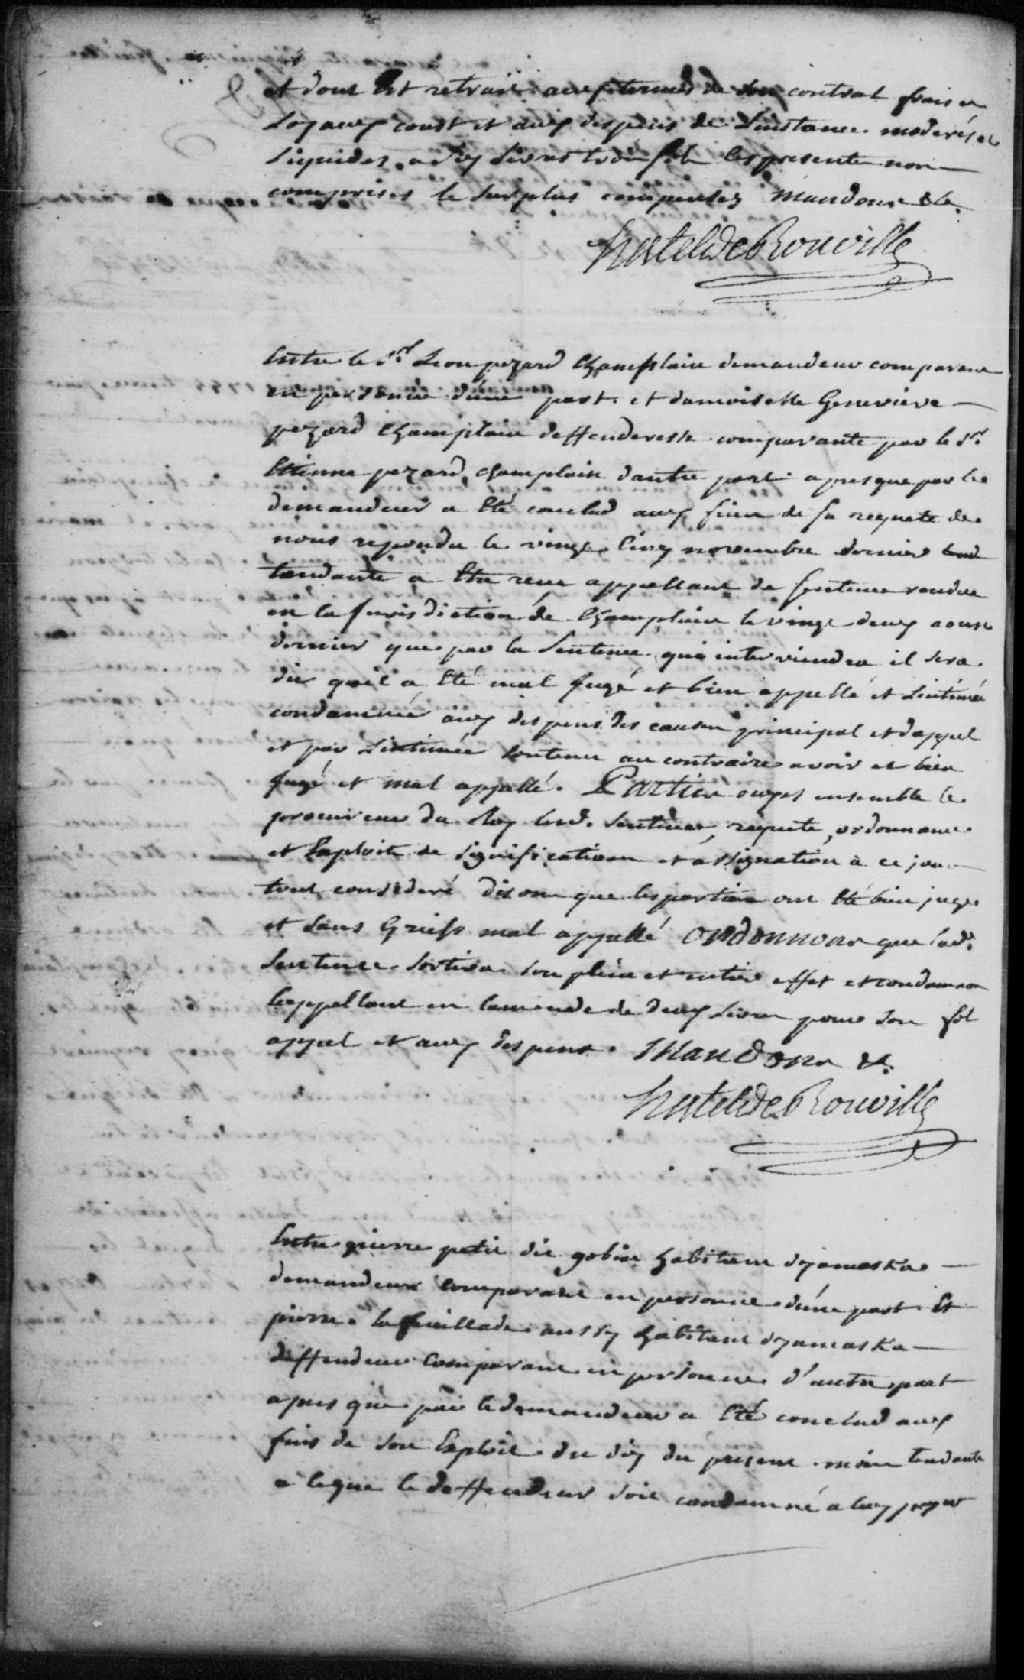 et dont est retrait aux termes de son contrat frais et
Loyaux cousts et aux depens de Linstance moderés et
Liquidés a dix Livres trois sols les presentes non
comprises le surplus compensez Mandons &c.
hertelde Rouville
Entre le Sr. Leon pezard Champlain demandeur comparant
en personne d'une part et damoiselle Genevieve
pezard Champlain deffenderesse comparante par le Sr.
Etienne pezard Champlain dautre part apres que par le
demandeur a Eté conclud aux fins de sa requete de
nous repondu le vingt Cinq novembre dernier
tendante a Etre receu appellant de sentence rendue
en la Jurisdiction de Champlain le vingt deux aoust
dernier que par la Sentence qui interviendra il sera
dit quil a Eté mal Jugé et bien appellé et Lintimée
condamnée aux depens des causes principal et dappel
et par Lintimée soutenu au contraire avoir eté bien
Jugé et mal appellé. Parties ouyes ensemble le
procureur du Roy lesd. Sentence, requete, ordonnance
et Exploits de signification et assignation à ce jour
tout consideré disons que les parties ont Eté bien jugé
et sans Griefs mal appellé ordonnons que lad.
Sentence sortira son plein et entier effet et condamnons
Lappellant en lamende de deux Livres pour son fol
appel et aux depens. Mandons &c.
hertelde Rouville
Entre pierre petit dit gobin habitant dyamaska
demandeur comparant en personne d'une part Et
pierre lafeuillade aussy habitant dyamaska
deffendeur comparant en personne d'autre part
apres que par le demandeur a Eté conclud aux
fins de son Exploit du dix du present mois tendante
a ceque le deffendeur soit condamné a luy payer